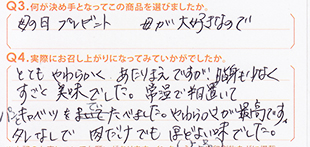 Q3.何が決め手となってこの商品を選びましたか。
母の日 プレゼント 母が大好きなので
Q4.実際にお召し上がりになってみていかがでしたか。
とてもやわらかく あたりまえですが 脂身も少なく
すごく美味でした。常温で 置いて
キャベツをまぜてたべました。やわらかさが最高です。
タレなしで 肉だけでも ほどよい味でした。